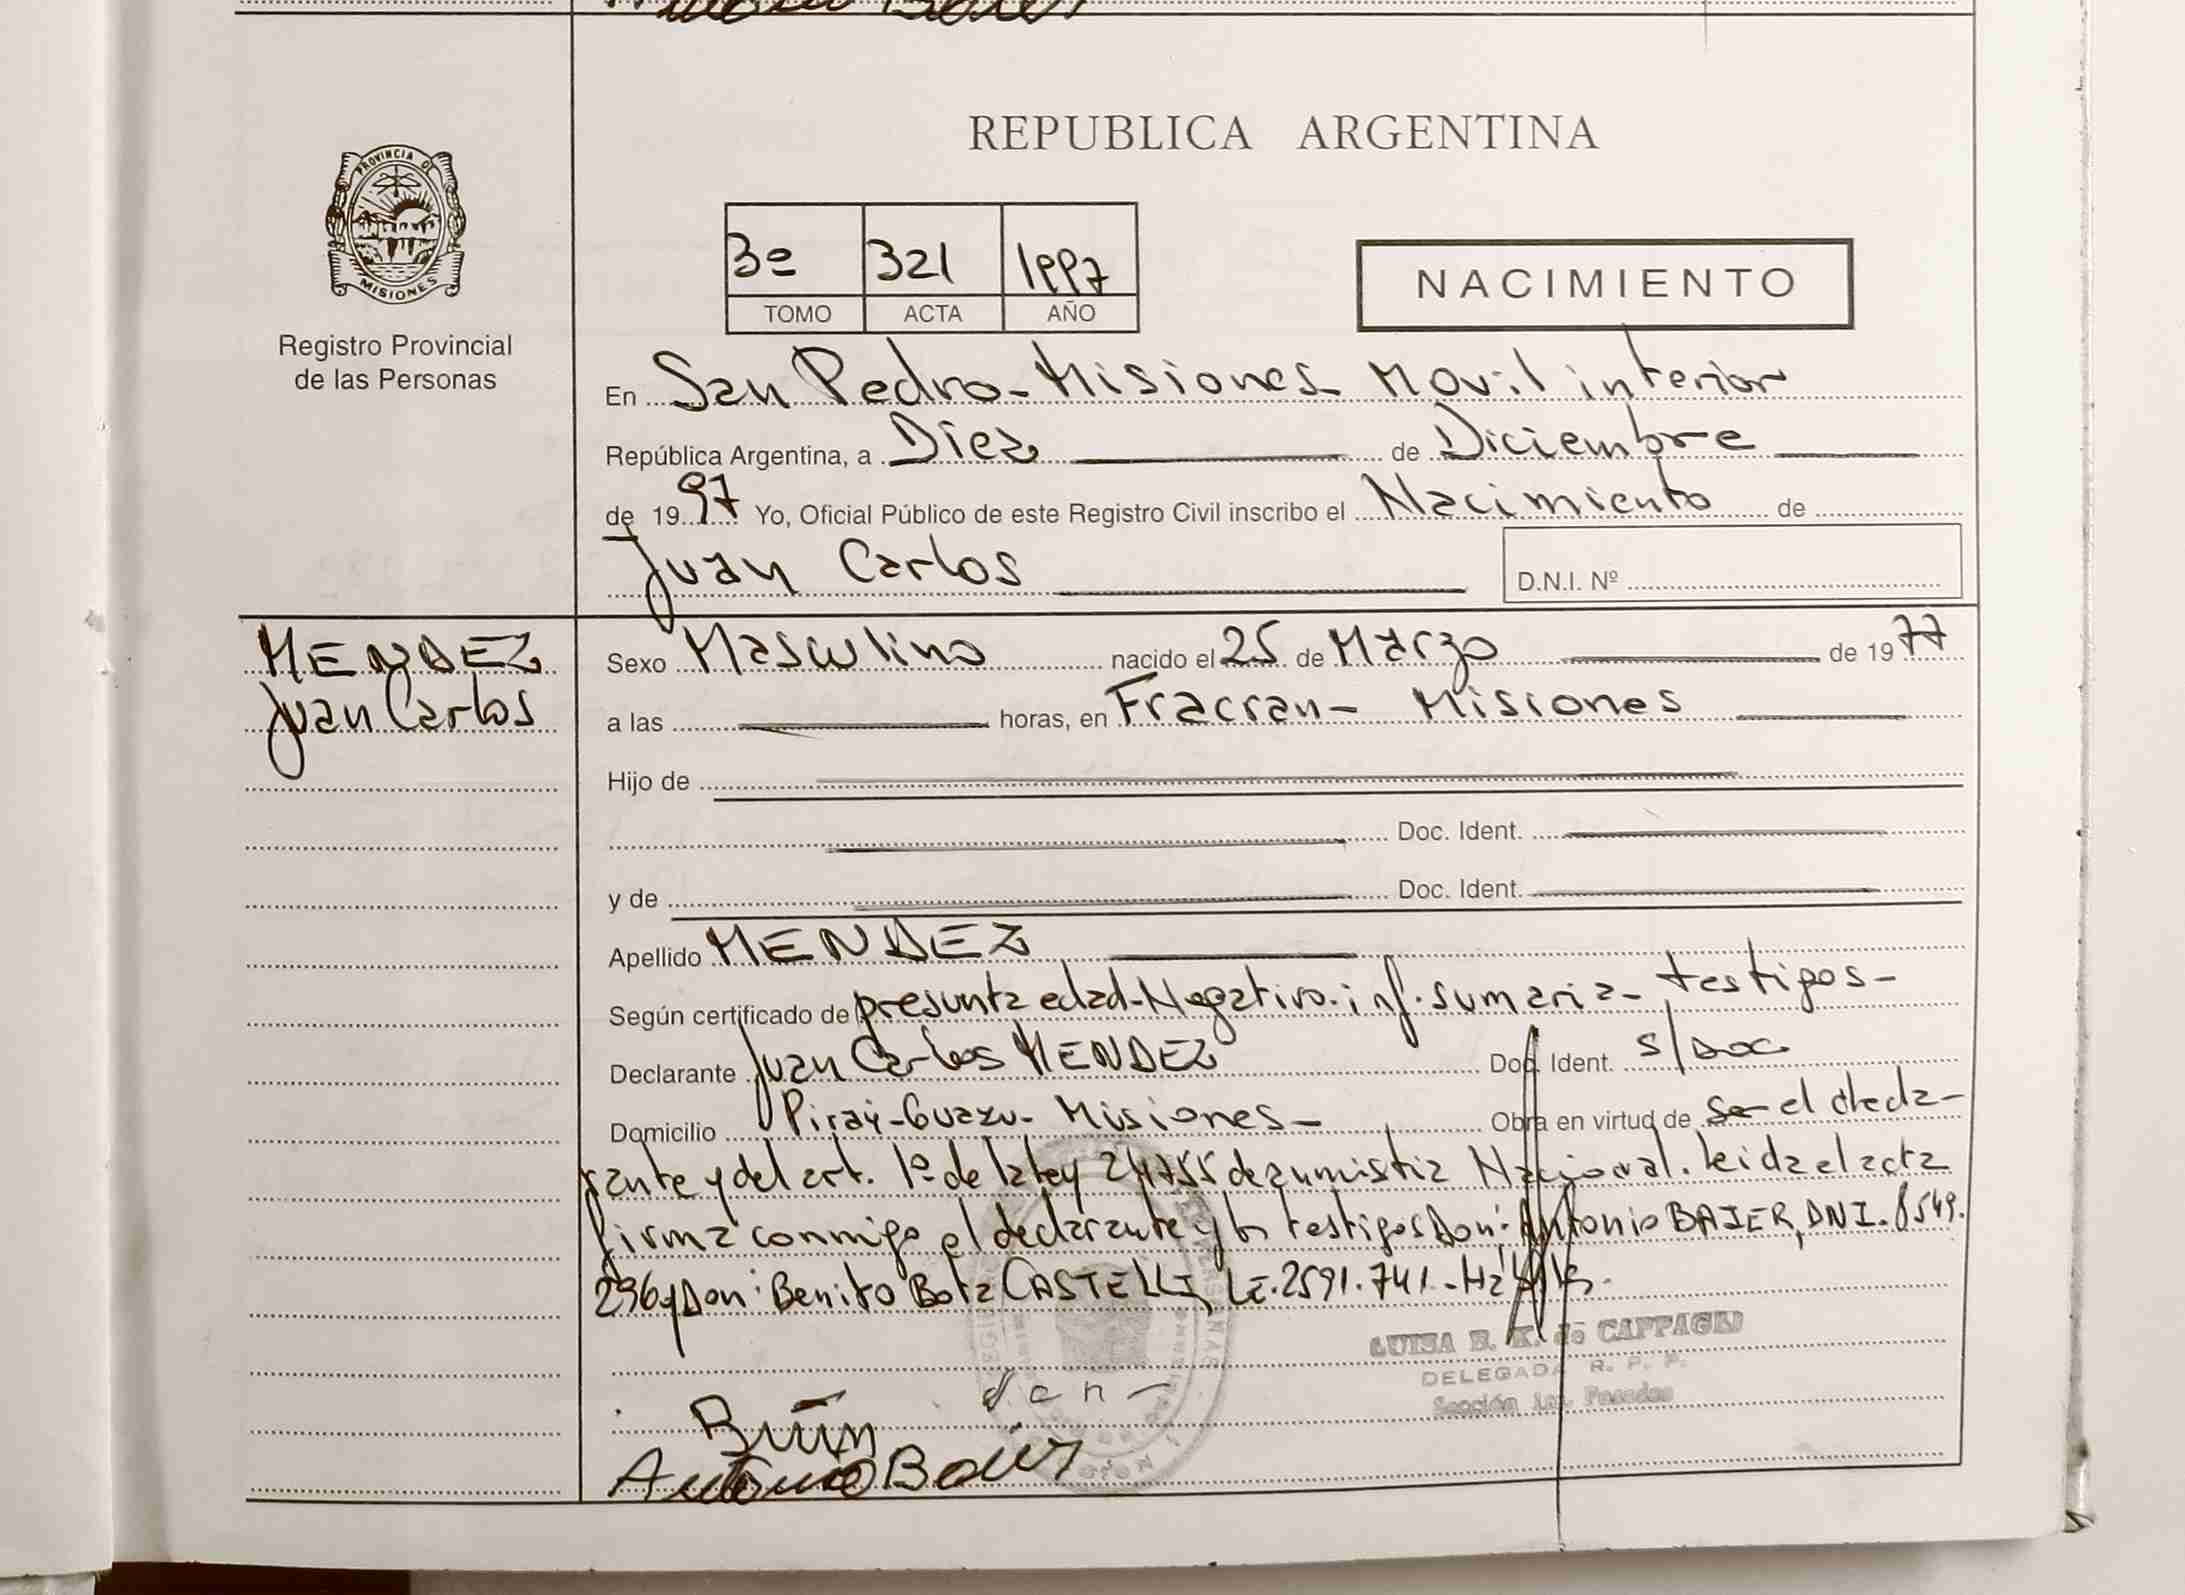 PROVINCIA D
MISIONES
Registro Provincial
de las Personas
REPUBLICA ARGENTINA
3º 321 1997
TOMO ACTA AÑO
NACIMIENTO
En San Pedro - Misiones - Movil interior
República Argentina, a Diez de Diciembre
de 1997 Yo, Oficial Público de este Registro Civil inscribo el Nacimiento de
Juan Carlos
D.N.I. Nº
MENDEZ
Juan Carlos
Sexo Masculino nacido el 25 de Marzo de 1977
a las horas, en Fracran - Misiones
Hijo de
Doc. Ident.
y de Doc. Ident.
Apellido MENDEZ
Según certificado de presunta edad - Negativo - inf. sumaria - testigos -
Declarante Juan Carlos MENDEZ Doc. Ident. s/Doc
Domicilio Piraý - Guazu - Misiones - Obra en virtud de el decla-
rante y del art. 1º de la ley 24755 de aumistia Nacional. Leida el acta
firma conmigo el declarante y ls testigos Don: Antonio BAIER, DNI. 8549.
296 y Don: Benito Bota CASTELLI, LE. 2591.741 -
LUISA E. K. de CAPPAGLI
DELEGADA R. P. P.
Sección Posadas
Antonio Baier